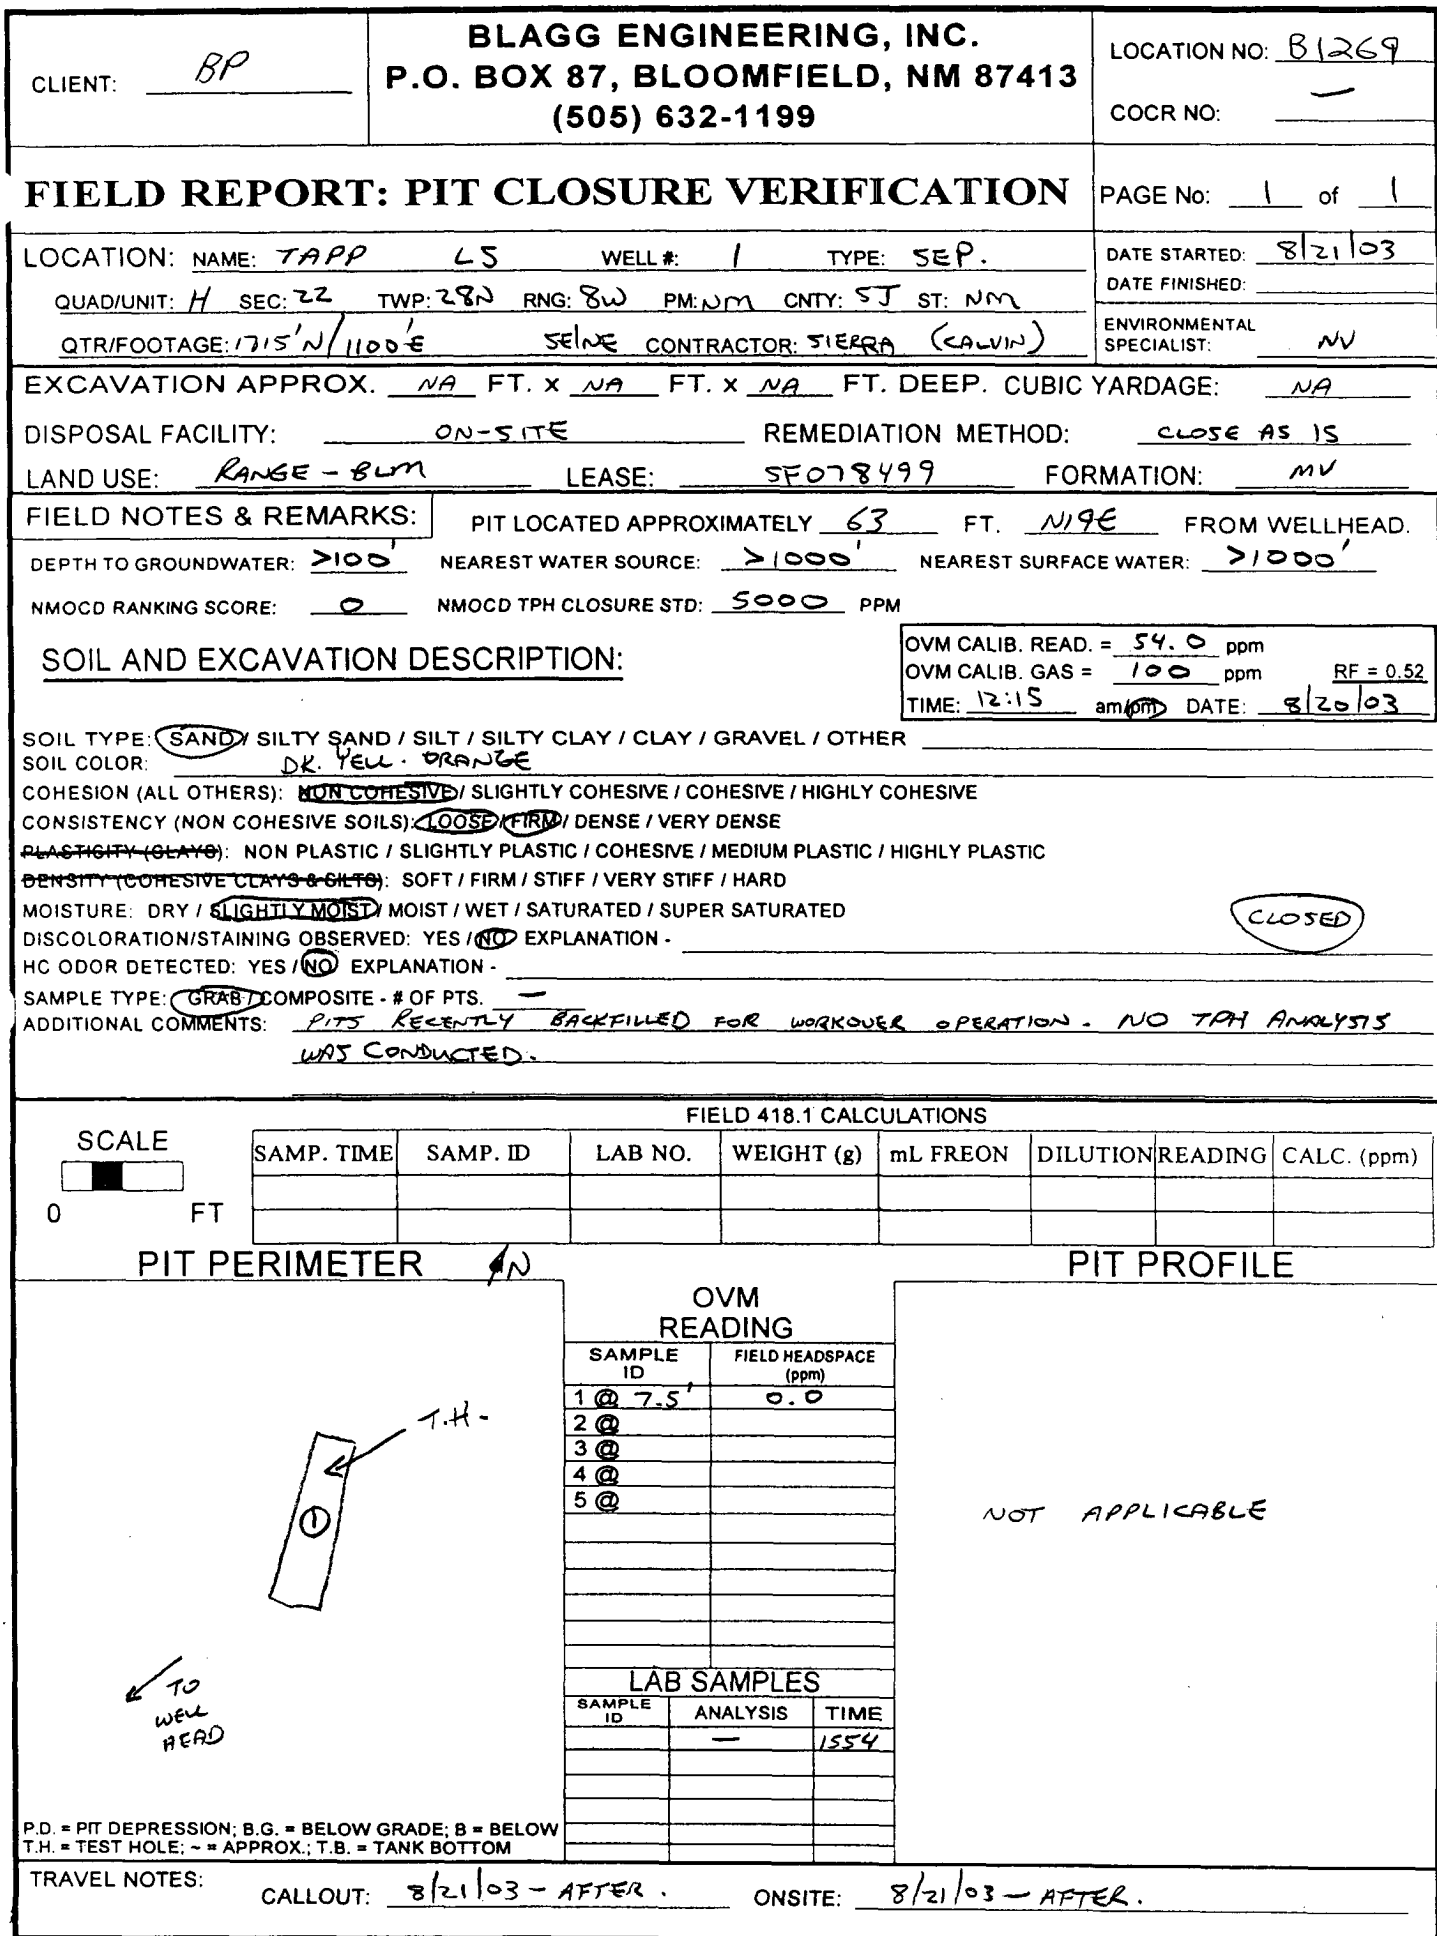 BLAGG ENGINEERING, INC.
P.O. BOX 87, BLOOMFIELD, NM 87413
(505) 632-1199
CLIENT: BP
LOCATION NO: B1269
COCR NO: —
FIELD REPORT: PIT CLOSURE VERIFICATION
PAGE No: 1 of 1
LOCATION: NAME: TAPP LS WELL #: 1 TYPE: SEP.
QUAD/UNIT: H SEC: 22 TWP: 28N RNG: 8W PM: NM CNTY: SJ ST: NM
QTR/FOOTAGE: 1715'N/1100'E SE/NE CONTRACTOR: SIERRA (CALVIN)
DATE STARTED: 8/21/03
DATE FINISHED:
ENVIRONMENTAL
SPECIALIST: NV
EXCAVATION APPROX. NA FT. x NA FT. x NA FT. DEEP. CUBIC YARDAGE: NA
DISPOSAL FACILITY: ON-SITE REMEDIATION METHOD: CLOSE AS IS
LAND USE: RANGE - BLM LEASE: SF078499 FORMATION: MV
FIELD NOTES & REMARKS: PIT LOCATED APPROXIMATELY 63 FT. N19E FROM WELLHEAD.
DEPTH TO GROUNDWATER: >100' NEAREST WATER SOURCE: >1000' NEAREST SURFACE WATER: >1000'
NMOCD RANKING SCORE: 0 NMOCD TPH CLOSURE STD: 5000 PPM
SOIL AND EXCAVATION DESCRIPTION:
OVM CALIB. READ. = 54.0 ppm
OVM CALIB. GAS = 100 ppm RF = 0.52
TIME: 12:15 am/pm DATE: 8/20/03
SOIL TYPE: SAND / SILTY SAND / SILT / SILTY CLAY / CLAY / GRAVEL / OTHER
SOIL COLOR: DK. YELL. ORANGE
COHESION (ALL OTHERS): NON COHESIVE / SLIGHTLY COHESIVE / COHESIVE / HIGHLY COHESIVE
CONSISTENCY (NON COHESIVE SOILS): LOOSE / FIRM / DENSE / VERY DENSE
PLASTICITY (CLAYS): NON PLASTIC / SLIGHTLY PLASTIC / COHESIVE / MEDIUM PLASTIC / HIGHLY PLASTIC
DENSITY (COHESIVE CLAYS & SILTS): SOFT / FIRM / STIFF / VERY STIFF / HARD
MOISTURE: DRY / SLIGHTLY MOIST / MOIST / WET / SATURATED / SUPER SATURATED
CLOSED
DISCOLORATION/STAINING OBSERVED: YES / NO EXPLANATION -
HC ODOR DETECTED: YES / NO EXPLANATION -
SAMPLE TYPE: GRAB / COMPOSITE - # OF PTS. —
ADDITIONAL COMMENTS: PITS RECENTLY BACKFILLED FOR WORKOVER OPERATION. NO TPH ANALYSIS
WAS CONDUCTED.
FIELD 418.1 CALCULATIONS
SCALE
0 FT
SAMP. TIME SAMP. ID LAB NO. WEIGHT (g) mL FREON DILUTION READING CALC. (ppm)
PIT PERIMETER N
PIT PROFILE
OVM
READING
SAMPLE
ID
FIELD HEADSPACE
(ppm)
1 @ 7.5' 0.0
2 @
3 @
4 @
5 @
T.H.
1
TO
WELL
HEAD
NOT APPLICABLE
LAB SAMPLES
SAMPLE
ID
ANALYSIS TIME
— 1554
P.D. = PIT DEPRESSION; B.G. = BELOW GRADE; B = BELOW
T.H. = TEST HOLE; ~ = APPROX.; T.B. = TANK BOTTOM
TRAVEL NOTES: CALLOUT: 8/21/03 - AFTER. ONSITE: 8/21/03 - AFTER.